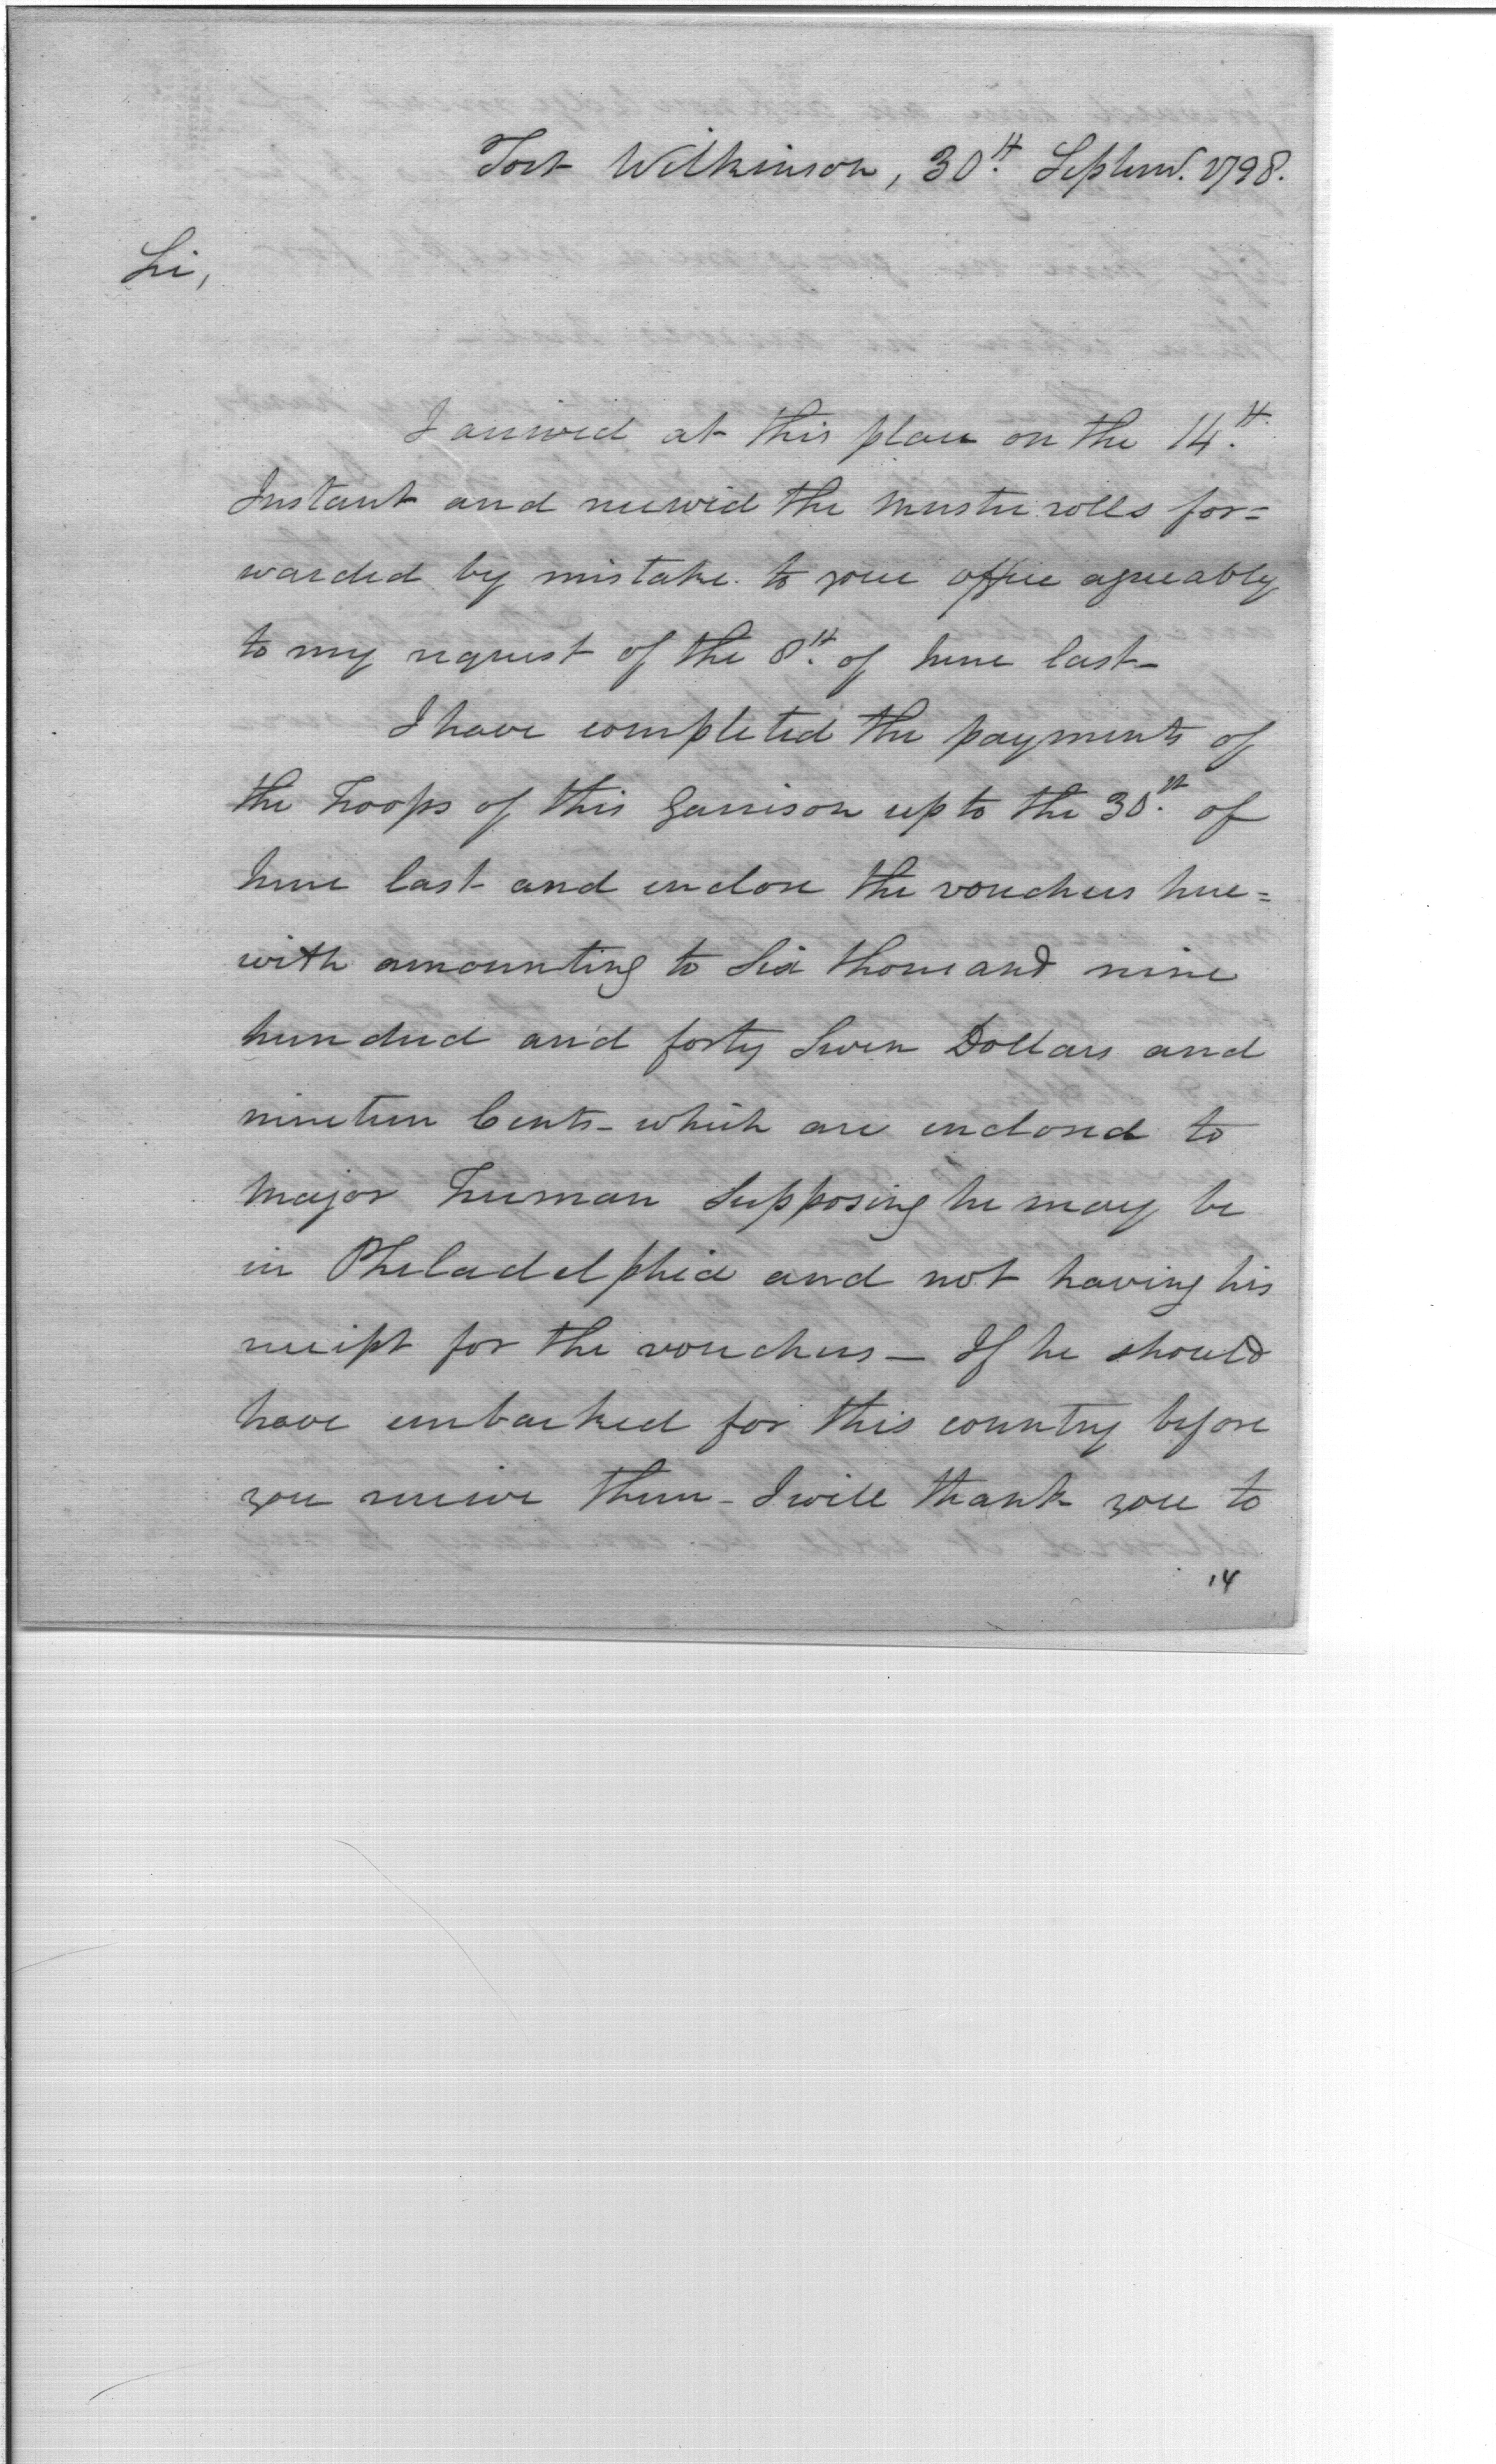 Fort Wilkinson, 30th Septemr. 1798.
Sir,
I arrived at this place on the 14th
Instant and received the muster rolls for=
warded by mistake to your office agreeably
to my request of the 8th of June last-
I have completed the payments of
the Troops of this Garrison up to the 30th of
June last and enclose the vouchers here=
with amounting to Six thousand nine
hundred and forty Seven Dollars and
nineteen Cents- which are enclosed to
Major Freeman Supposing he may be
in Philadelphia and not having his
receipt for the vouchers- If he should
have embarked for this country before
you receive them- I will thank you to
14